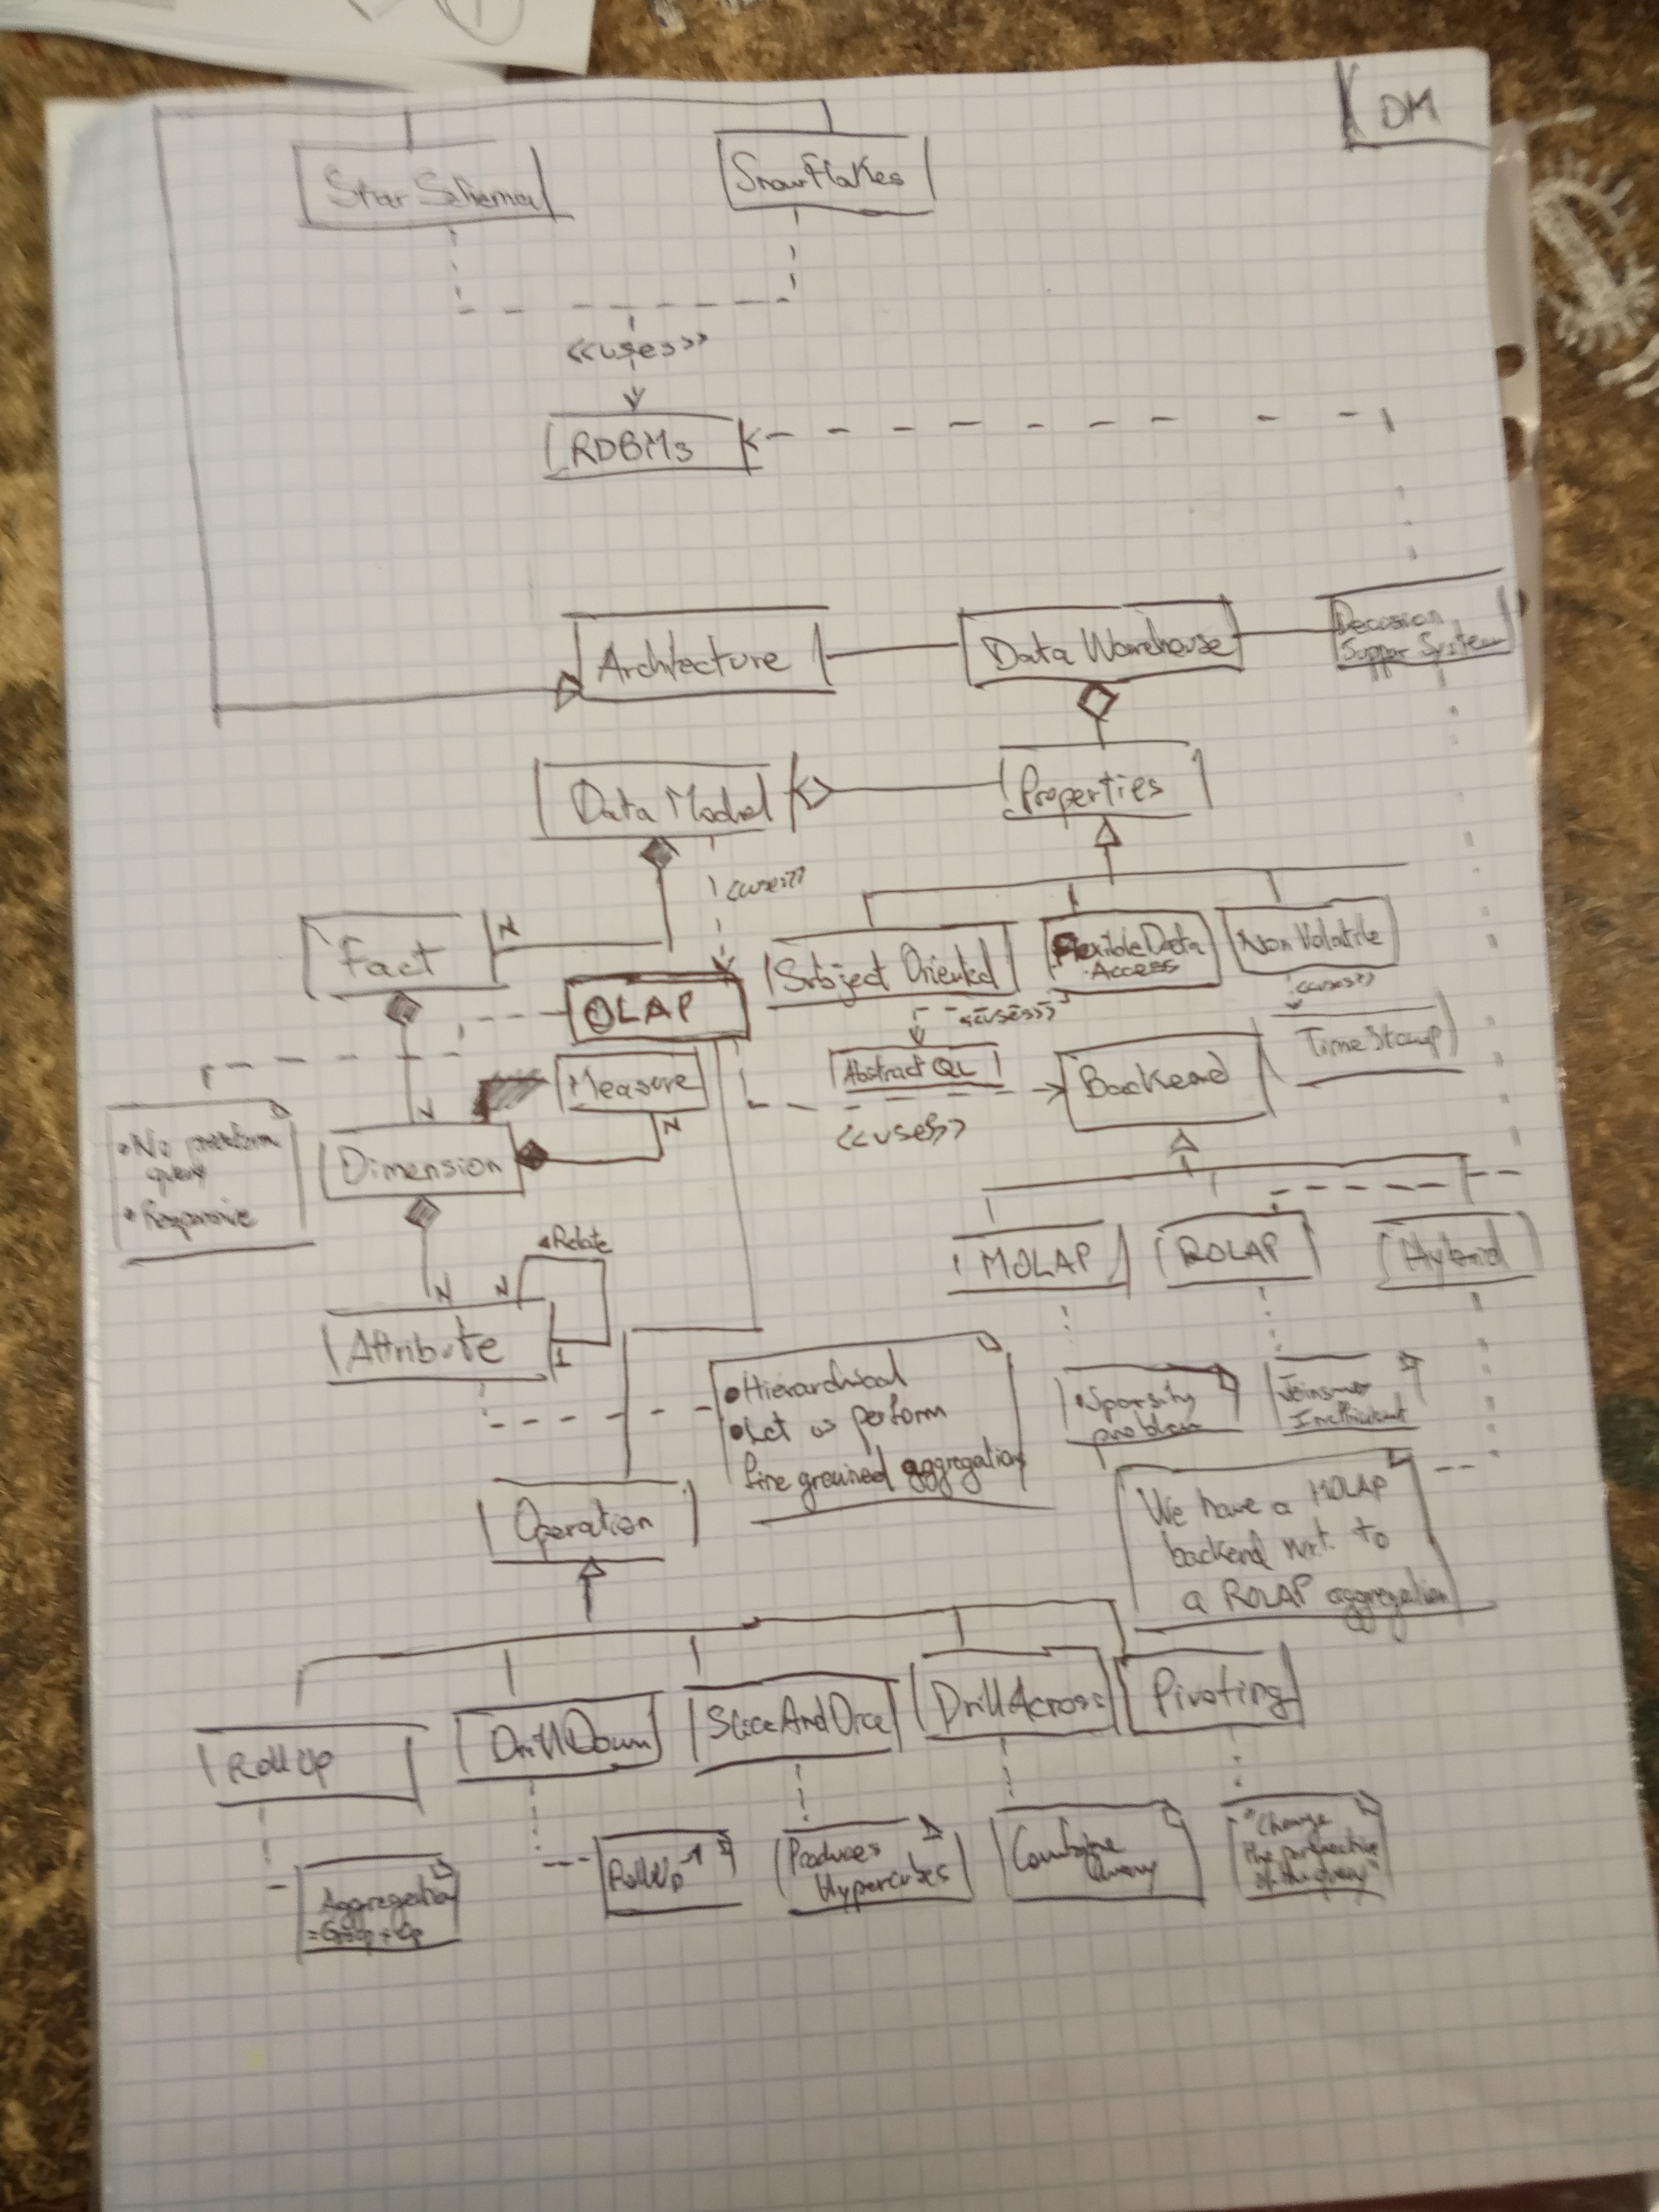 DM
Star Schema
Snowflakes
<<uses>>
RDBMs
Architecture
Data Warehouse
Decosion
Suppor System
Data Model
Properties
<<uses>>
Fact
N
OLAP
Subject Oriented
Flexible Data
Access
Non Volatile
<<uses>>
<<uses>>
TimeStamp
Abstract QL
Backend
Measure
N
N
<<uses>>
• No
query
• Responsive
Dimension
Relate
N
N
Attribute
1
MOLAP
ROLAP
Hybrid
• Hierarchical
• Let us perform
fine grained aggregation
• Sparsity
problem
Joins
Inefficient
Operation
We have a MOLAP
backend w.r.t. to
a ROLAP aggregation
RollUp
DrillDown
SliceAndDice
DrillAcross
Pivoting
Aggregation
= Group + Op
RollUp⁻¹
Produces
Hypercubes
Combine
Query
"Change
the perspective
of the query"